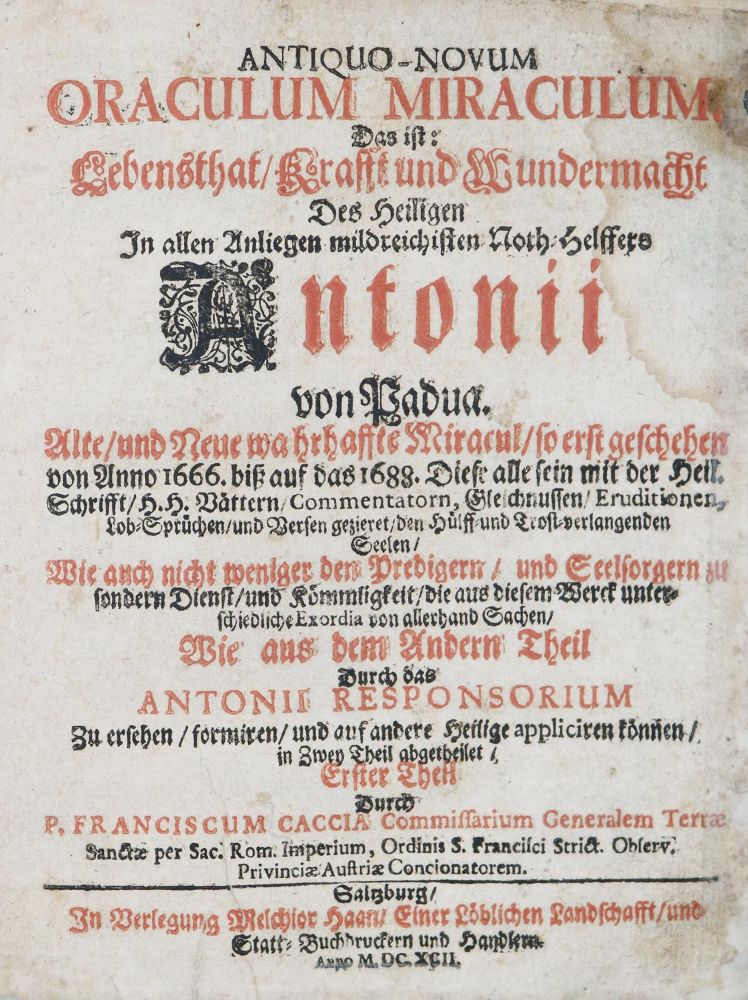 ANTIQUO-NOVUM
ORACULUM MIRACULUM.
Das ist:
Lebensthat/ Krafft und Wundermacht
Des Heiligen
In allen Anliegen mildreichisten Noth-Helffers
Antonii
von Padua.
Alte/und Neue wahrhaffte Miracul/so erst geschehen
von Anno 1666. biß auf das 1688. Diese alle sein mit der Heil.
Schrifft/ H.H. Vättern/ Commentatorn, Gleichnussen/ Eruditionen,
Lob-Sprüchen/und Versen gezieret/den Hülff-und Trost-verlangenden
Seelen/
Wie auch nicht weniger den Predigern/ und Seelsorgern zu
sondern Dienst/und Kömmligkeit/die aus diesem Werck unter-
schiedliche Exordia von allerhand Sachen/
Wie aus dem Andern Theil
Durch das
ANTONII RESPONSORIUM
Zu ersehen/ formiren/ und auf andere Heilige appliciren können/
in Zwey Theil abgetheilet/
Erster Theil
Durch
P. FRANCISCUM CACCIA Commissarium Generalem Terræ
Sanctæ per Sac. Rom. Imperium, Ordinis S. Francisci Strict. Observ.
Privinciæ Austriæ Concionatorem.
Saltzburg/
In Verlegung Melchior Haan/ Einer Löblichen Landschafft/und
Statt-Buchdruckern und Handlern.
Anno M. DC. XCII.